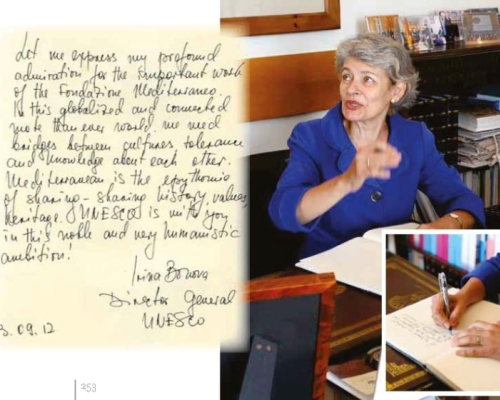 Let me express my profound
admiration for the important work
of the Fondazione Mediterraneo.
In this globalized and connected
more than ever world we need
bridges between cultures, tolerance
and knowledge about each other.
Mediterranean is the
of sharing - sharing history, values,
heritage. UNESCO is with you
in this noble and very humanistic
ambition!
Irina Bokova
Director General
UNESCO
3.09.12
353